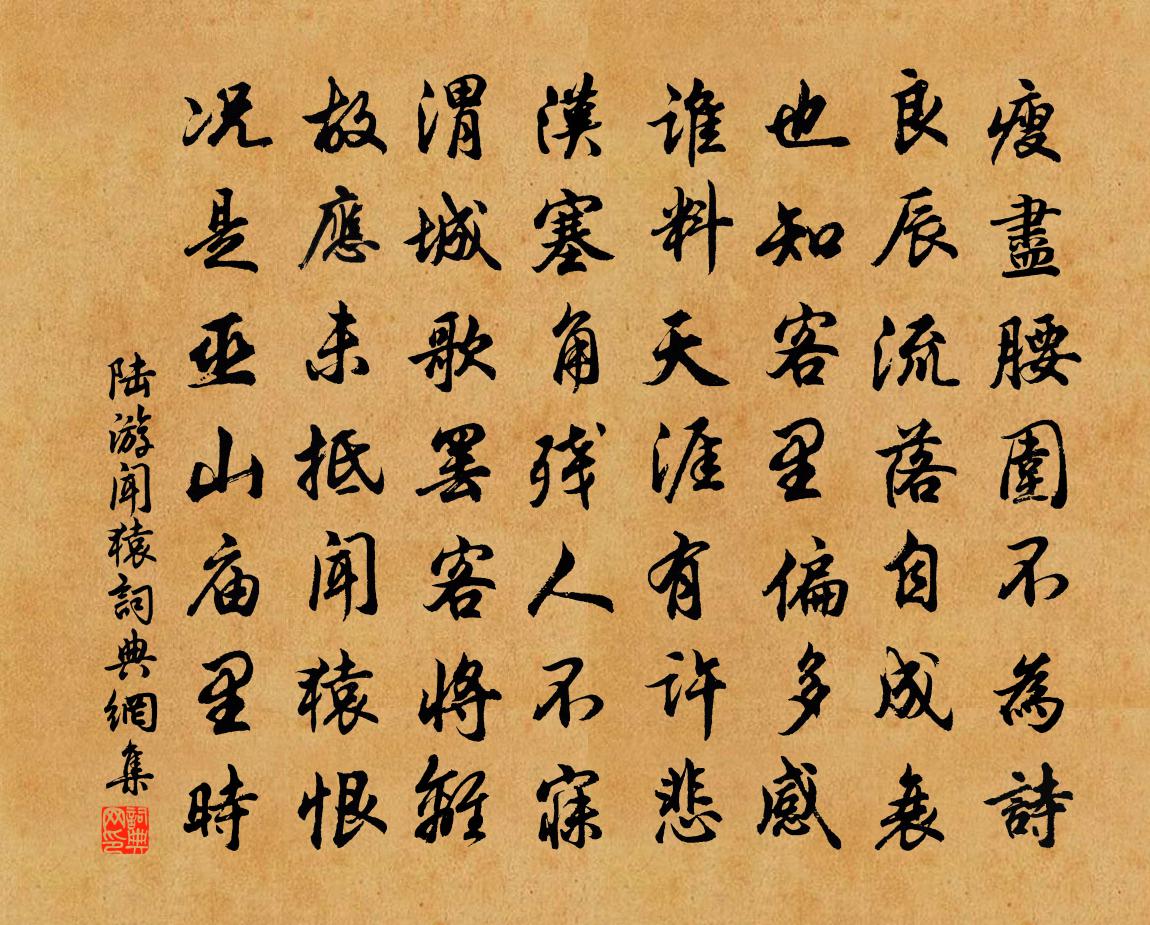 瘦盡腰圍不為詩
良辰流落自成衰
也知客里偏多感
谁料天涯有许悲
漢塞角残人不寐
渭城歌罢客將離
故應未抵闻猿恨
况是巫山庙里時
陆游闻猿詞典網集
詞典網印